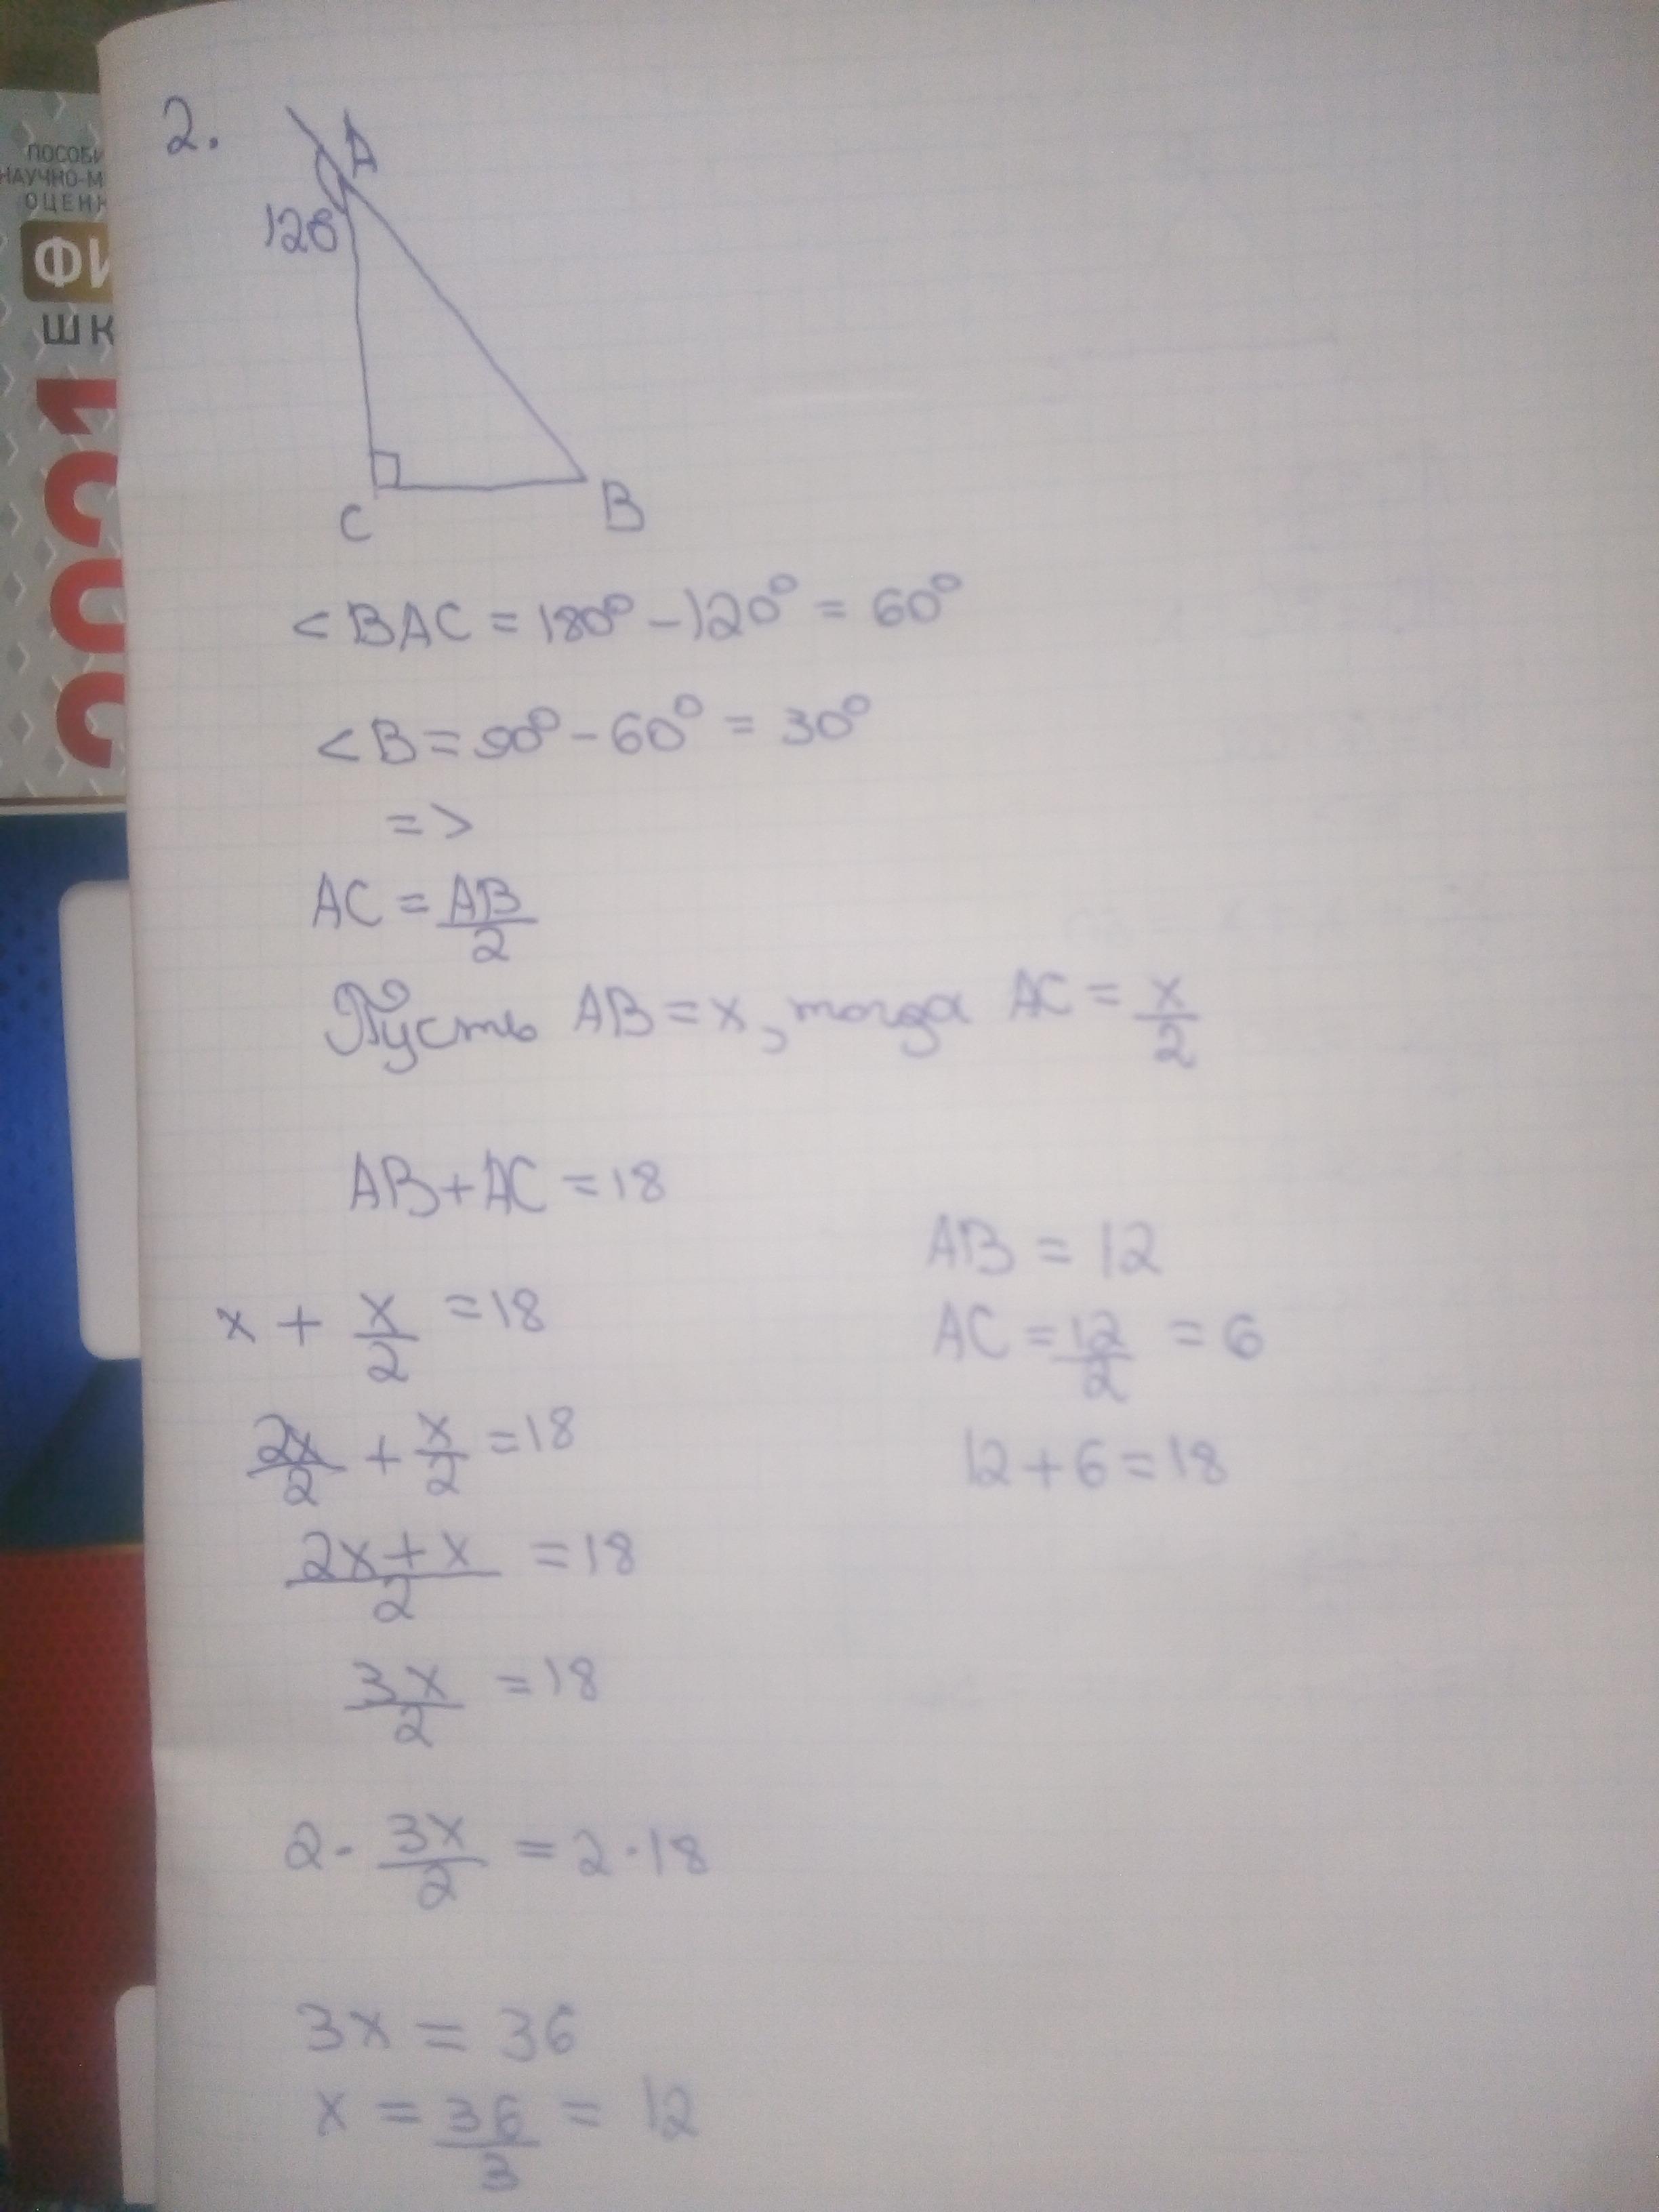 ПОСОБИ
НАУЧНО-М
ОЦЕН
ФИ
ШК
2021
2.
A
120
C
B
<BAC = 180° - 120° = 60°
<B = 90° - 60° = 30°
=>
AC = AB/2
Пусть AB = x, тогда AC = x/2
AB + AC = 18
x + x/2 = 18
2x/2 + x/2 = 18
(2x + x)/2 = 18
3x/2 = 18
2 · 3x/2 = 2 · 18
3x = 36
x = 36/3 = 12
AB = 12
AC = 12/2 = 6
12 + 6 = 18